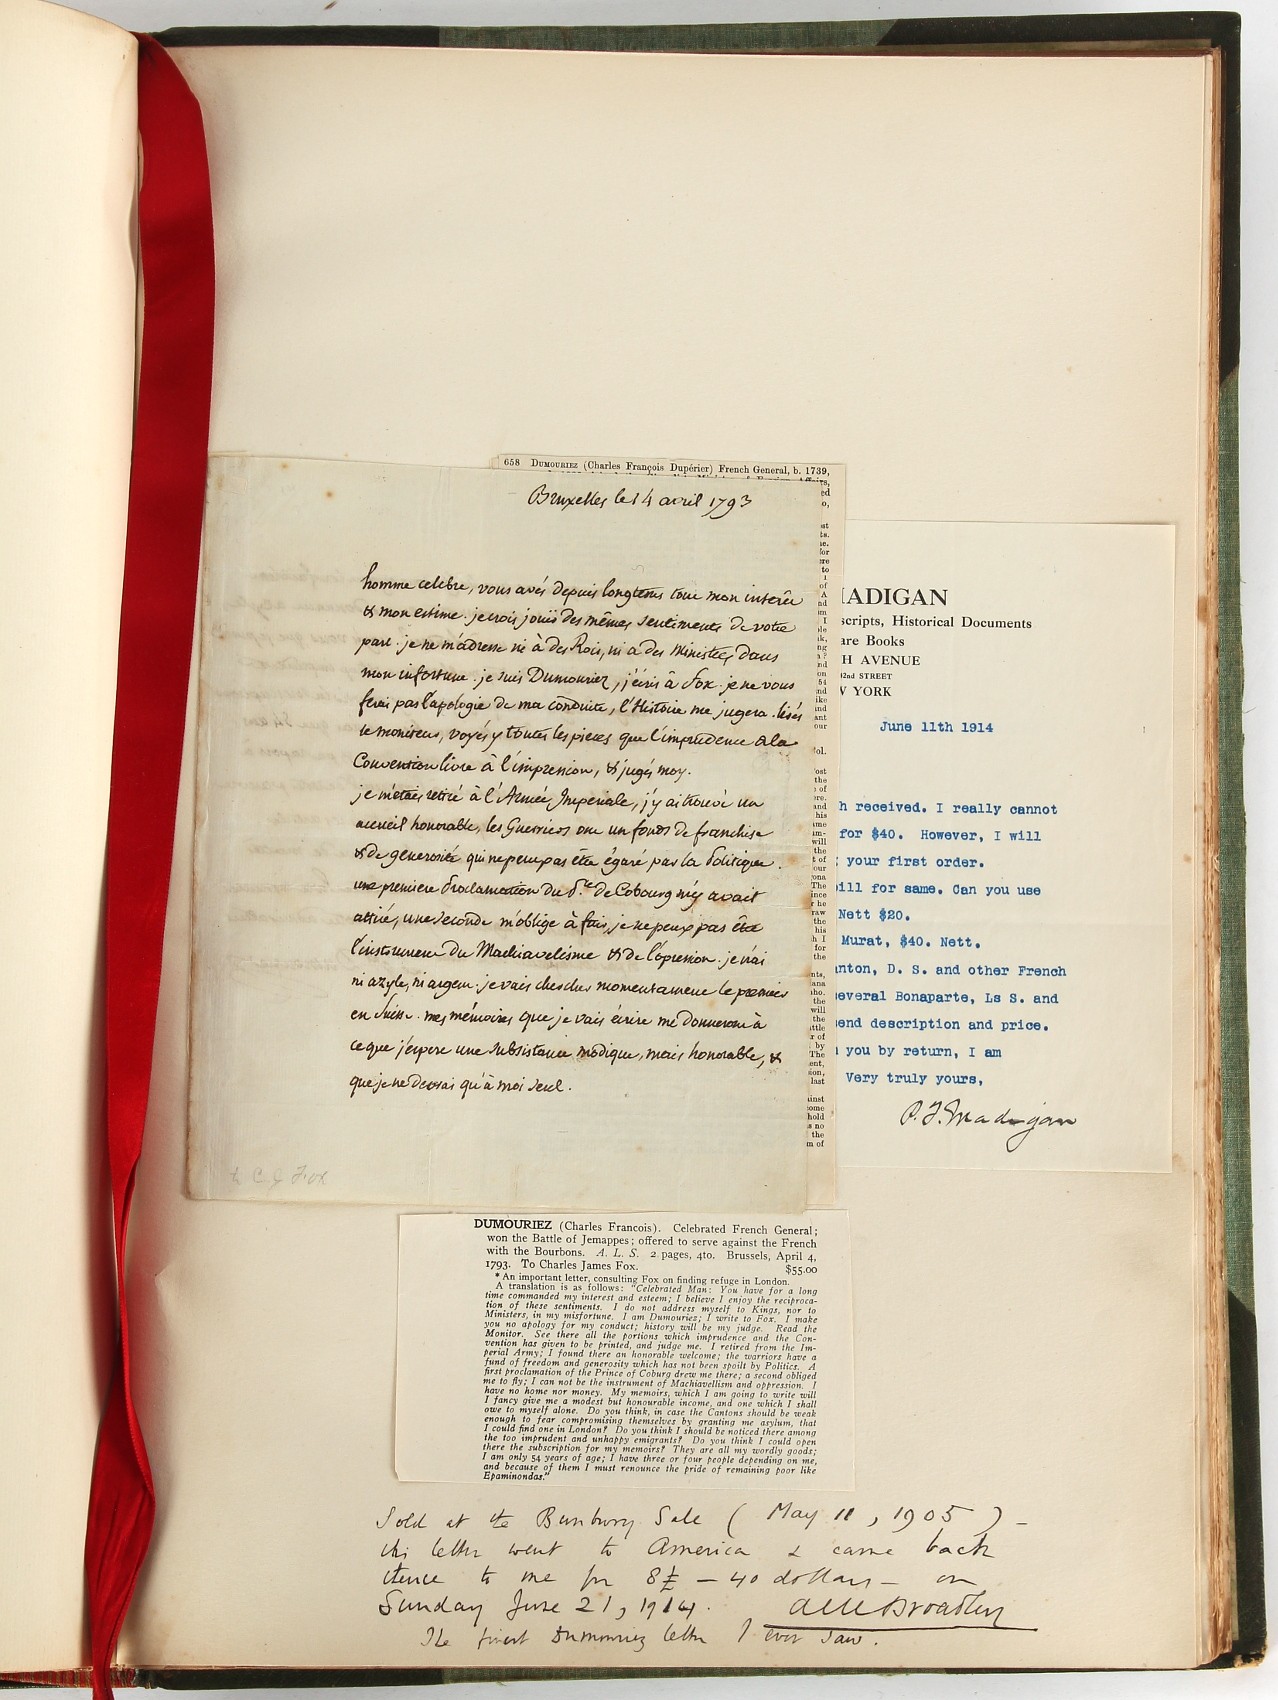 658 DUMOURIEZ (Charles François Dupérier) French General, b. 1739,
Bruxelles le 14 avril 1793
homme celebre, vous avés depuis longtems tout mon interêt
& mon estime. je crois jouir des mêmes sentiments de votre
part. je ne m'adresse ni à des Rois, ni a des Ministres dans
mon infortune. je suis Dumouriez, j'écris à Fox. je ne vous
ferai pas l'apologie de ma conduite, l'Histoire me jugera. lisés
le moniteur, voyés y toutes les pieces que l'imprudence a la
Convention livre à l'impression, & jugés moy.
je m'étais retiré à l'Armée Imperiale, j'y ai trouvé un
accueil honorable, les Guerriers ont un fonds de franchise
& de generosité qui ne peut pas être égaré par la Politique.
une premiere Proclamation du P.ce de Cobourg m'y avait
attiré, une seconde m'oblige à fuir, je ne peux pas être
l'instrument du Machiavelisme & de l'opression. je n'ai
ni azyle, ni argent. je vais chercher momentanement le premier
en Suisse. mes mémoires que je vais écrire me donneront à
ce que j'espere une subsistance modique, mais honorable, &
que je ne devrai qu'à moi seul.
to C J Fox
MADIGAN
scripts, Historical Documents
are Books
H AVENUE
42nd STREET
W YORK
June 11th 1914
h received. I really cannot
for $40. However, I will
your first order.
ill for same. Can you use
Nett $20.
Murat, $40. Nett.
anton, D. S. and other French
several Bonaparte, Ls S. and
end description and price.
you by return, I am
Very truly yours,
P. F. Madigan
DUMOURIEZ (Charles Francois). Celebrated French General;
won the Battle of Jemappes; offered to serve against the French
with the Bourbons. A. L. S. 2 pages, 4to. Brussels, April 4,
1793. To Charles James Fox. $55.00
* An important letter, consulting Fox on finding refuge in London.
A translation is as follows: "Celebrated Man: You have for a long
time commanded my interest and esteem; I believe I enjoy the reciproca-
tion of these sentiments. I do not address myself to Kings, nor to
Ministers, in my misfortune. I am Dumouriez; I write to Fox. I make
you no apology for my conduct; history will be my judge. Read the
Monitor. See there all the portions which imprudence and the Con-
vention has given to be printed, and judge me. I retired from the Im-
perial Army; I found there an honorable welcome; the warriors have a
fund of freedom and generosity which has not been spoilt by Politics. A
first proclamation of the Prince of Coburg drew me there; a second obliged
me to fly; I can not be the instrument of Machiavellism and oppression. I
have no home nor money. My memoirs, which I am going to write will
I fancy give me a modest but honourable income, and one which I shall
owe to myself alone. Do you think, in case the Cantons should be weak
enough to fear compromising themselves by granting me asylum, that
I could find one in London? Do you think I should be noticed there among
the too imprudent and unhappy emigrants? Do you think I could open
there the subscription for my memoirs? They are all my wordly goods;
I am only 54 years of age; I have three or four people depending on me,
and because of them I must renounce the pride of remaining poor like
Epaminondas."
Sold at the Bunbury Sale (May 11, 1905) —
this letter went to America & came back
thence to me for 8£ — 40 dollars — on
Sunday June 21, 1914. A M Broadley
The finest Dumouriez letter I ever saw.